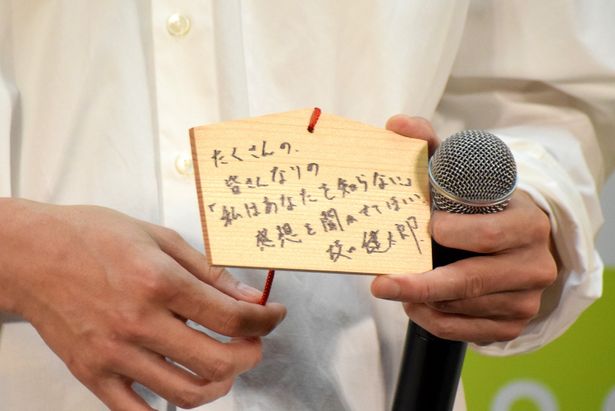 たくさんの、
皆さんなりの
「私はあなたを知らない、」
感想を聞かせてほしい
坂東 健太郎